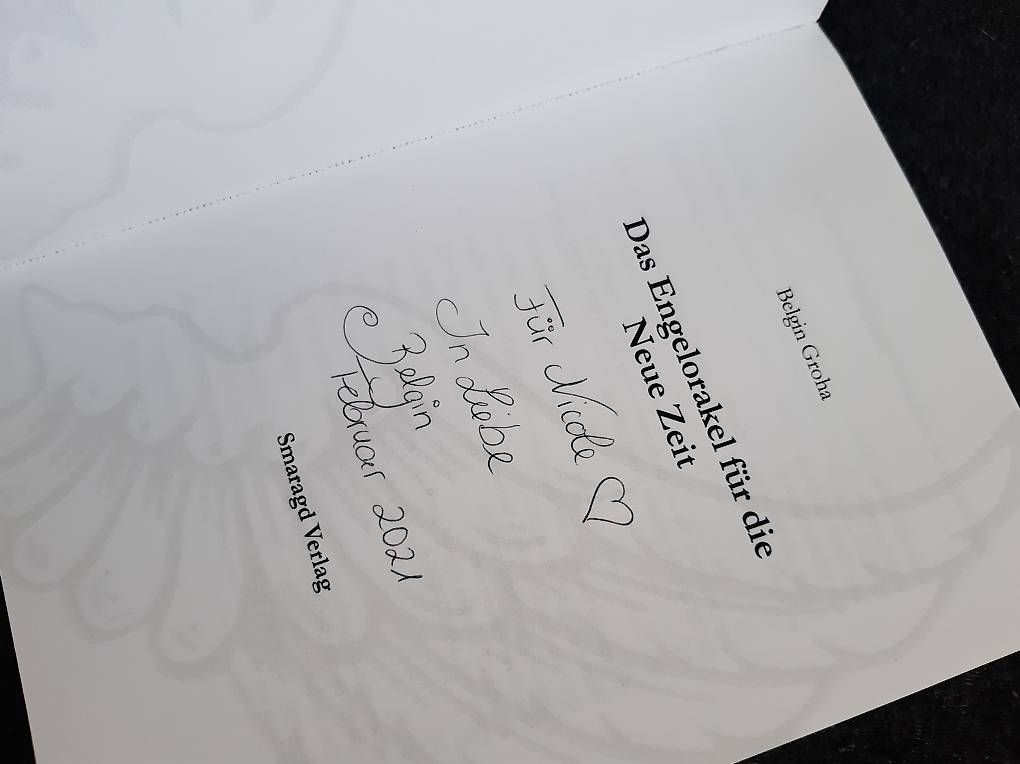 Belgin Groha
Das Engelorakel für die
Neue Zeit
Für Nicole ♡
In Liebe
Belgin
Februar 2021
Smaragd Verlag